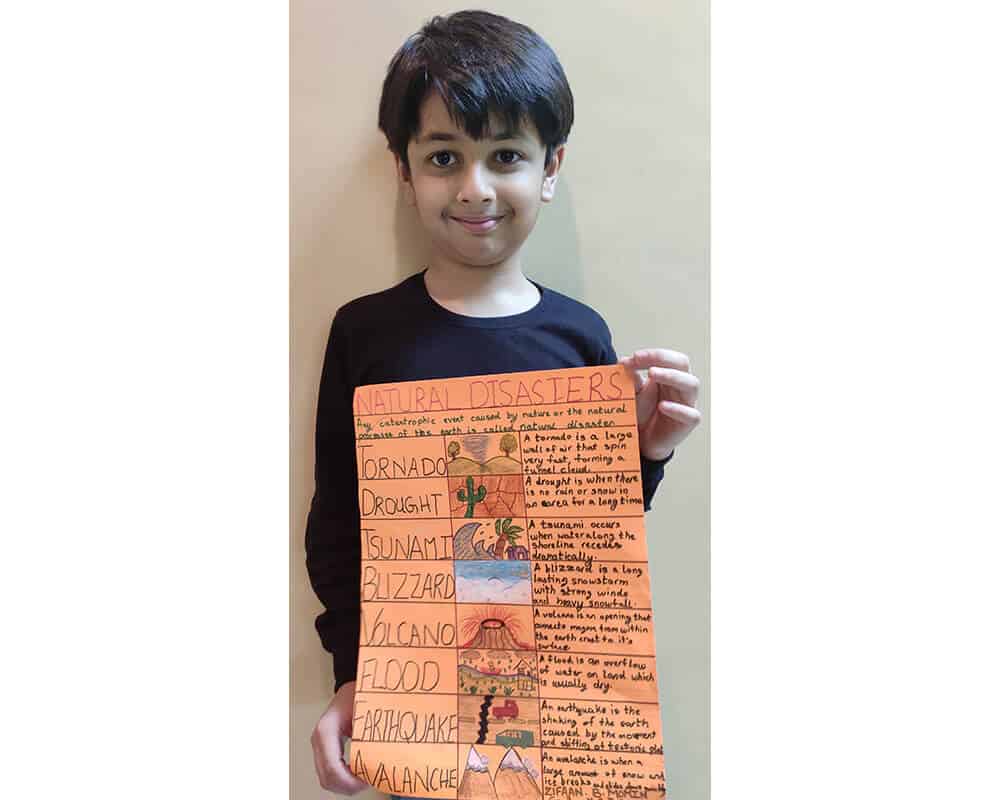 NATURAL DISASTERS
Any catastrophic event caused by nature or the natural
processes of the earth is called natural disaster
TORNADO
A tornado is a large
wall of air that spin
very fast, forming a
funnel cloud.
DROUGHT
A drought is when there
is no rain or snow in
an area for a long time
TSUNAMI
A tsunami occurs
when water along the
shoreline recedes
dramatically.
BLIZZARD
A blizzard is a long
lasting snowstorm
with strong winds
and heavy snowfall.
VOLCANO
A volcano is an opening that
magma from within
the earth crust to it's
surface
FLOOD
A flood is an overflow
of water on land which
is usually dry.
EARTHQUAKE
An earthquake is the
shaking of the earth
caused by the movement
and shifting of tectonic plat
AVALANCHE
An avalanche is when a
large amount of snow and
ice breaks and slides down
ZIFAAN. B. MOMIN